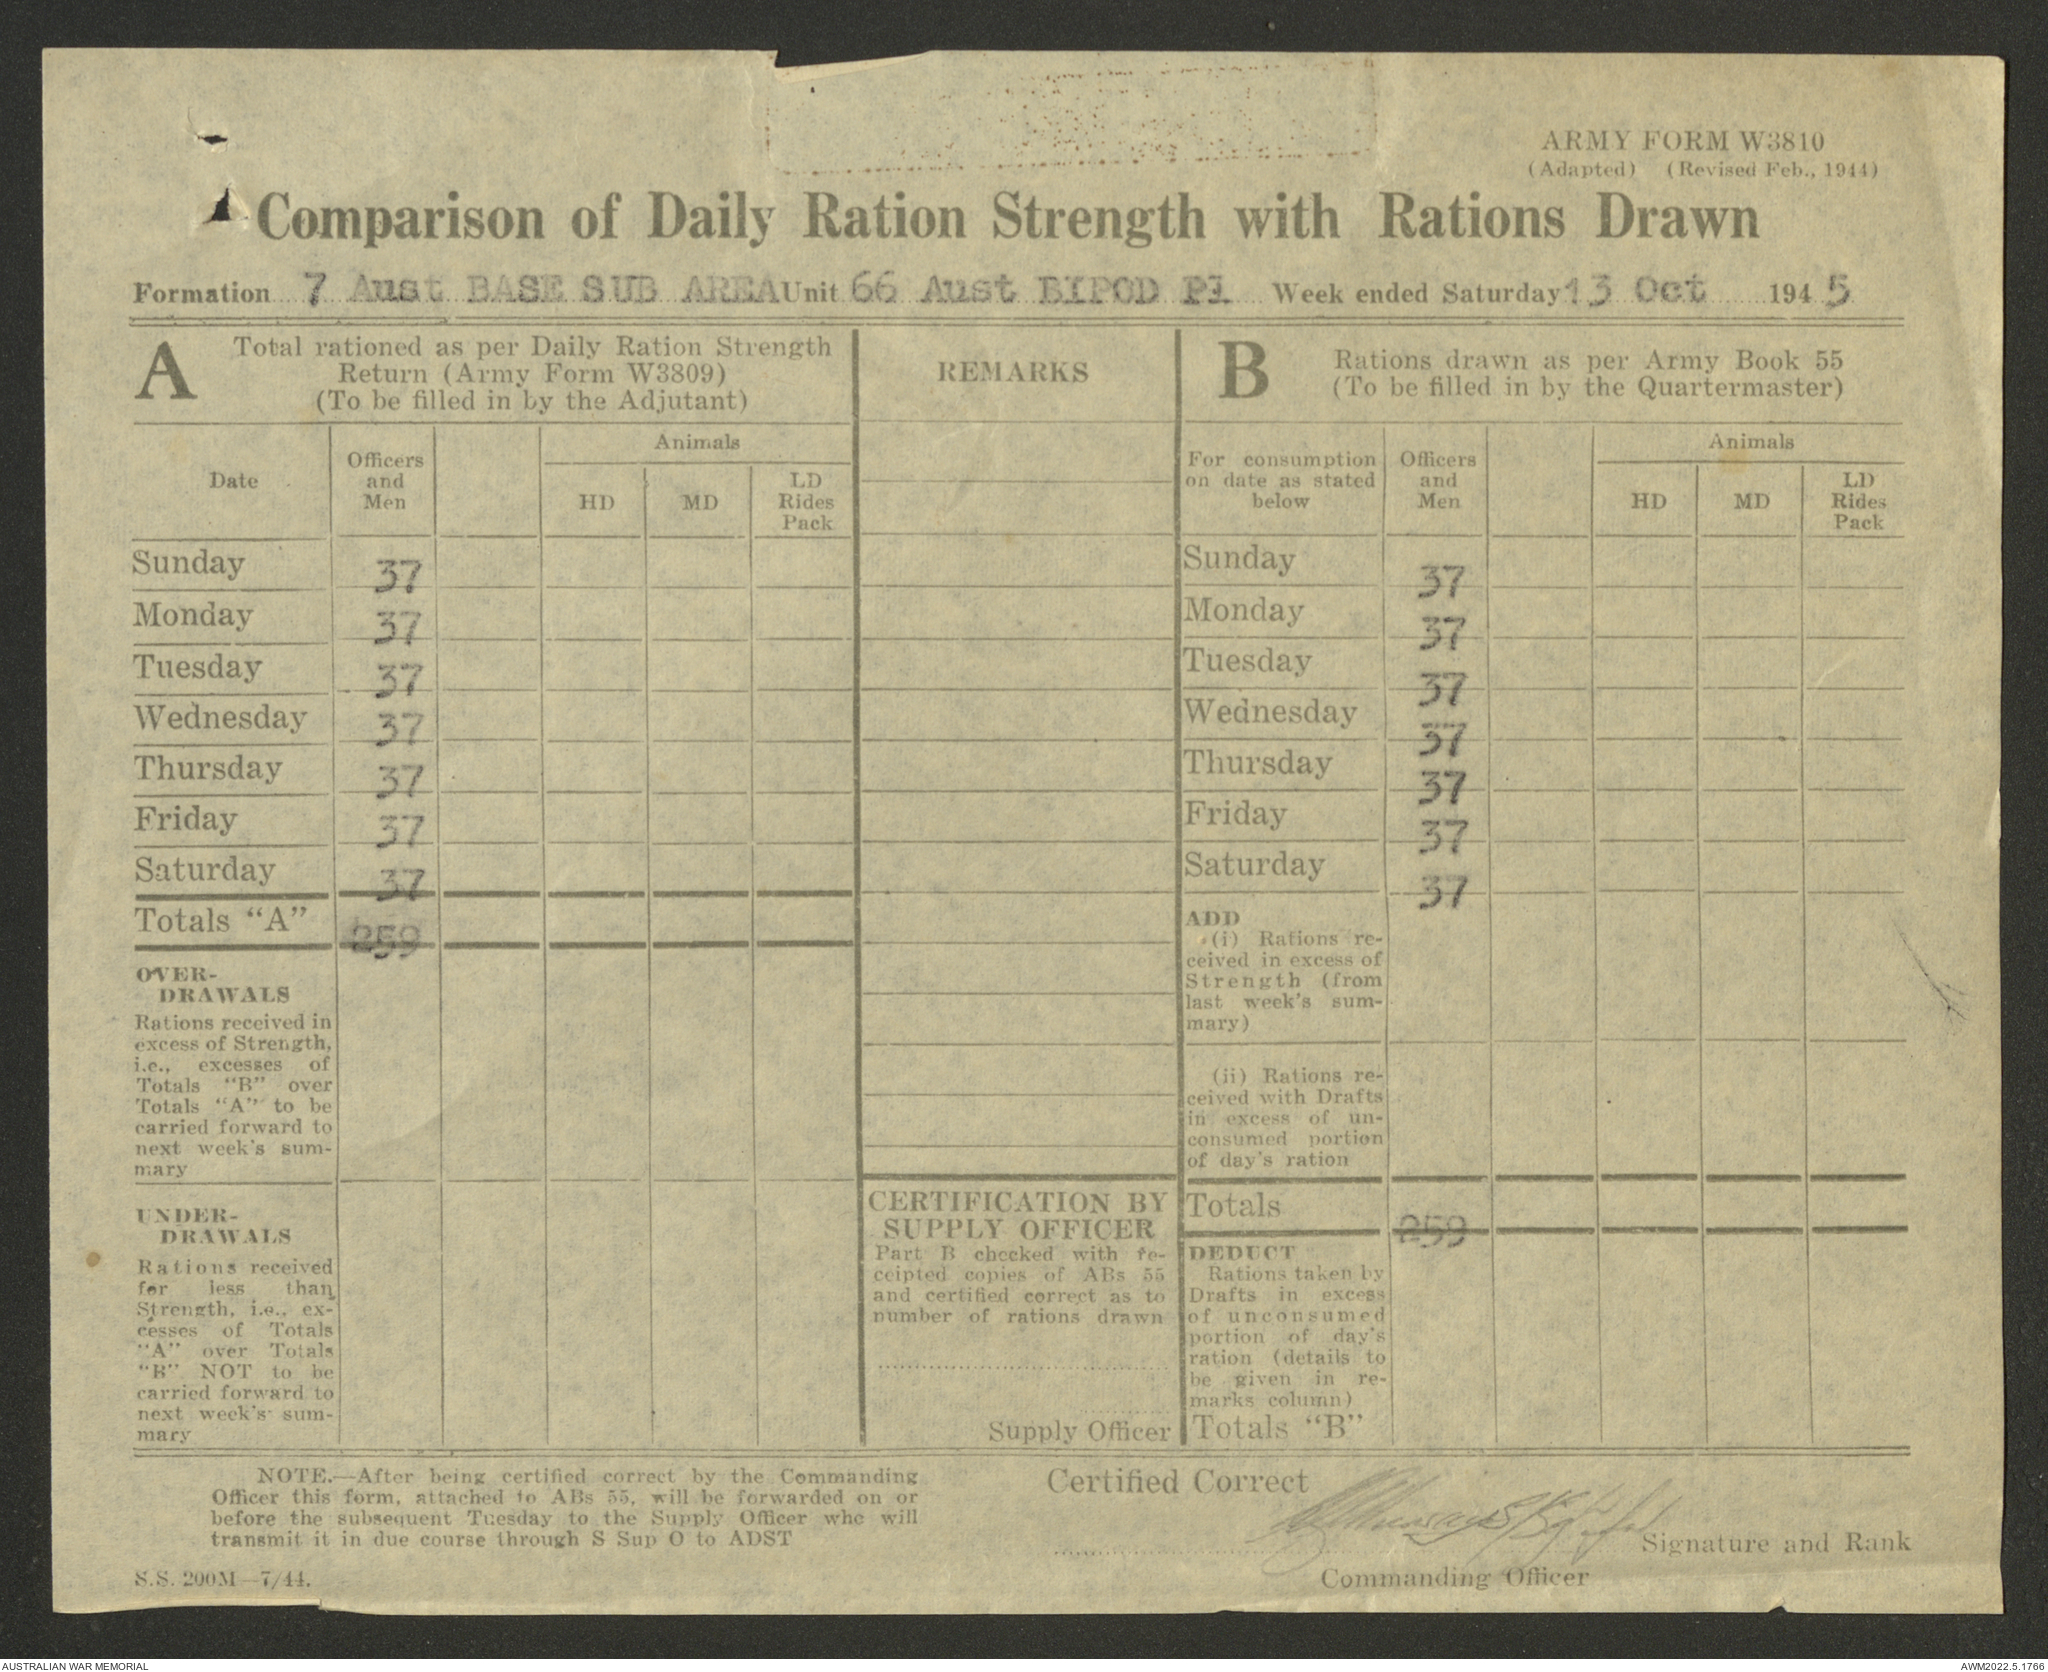 ARMY FORM W3810
(Adapted) (Revised Feb., 1944)
Comparison of Daily Ration Strength with Rations Drawn
Formation 7 Aust BASE SUB AREA Unit 66 Aust BIPOD Pl Week ended Saturday 13 Oct 1945
A
Total rationed as per Daily Ration Strength
Return (Army Form W3809)
(To be filled in by the Adjutant)
Date
Officers
and
Men
Animals
HD
MD
LD
Rides
Pack
Sunday 37
Monday 37
Tuesday 37
Wednesday 37
Thursday 37
Friday 37
Saturday 37
Totals "A" 259
OVER-
DRAWALS
Rations received in
excess of Strength,
i.e., excesses of
Totals "B" over
Totals "A" to be
carried forward to
next week's sum-
mary
UNDER-
DRAWALS
Rations received
for less than
Strength, i.e., ex-
cesses of Totals
"A" over Totals
"B" NOT to be
carried forward to
next week's sum-
mary
REMARKS
CERTIFICATION BY
SUPPLY OFFICER
Part B checked with re-
ceipted copies of ABs 55
and certified correct as to
number of rations drawn
Supply Officer
B
Rations drawn as per Army Book 55
(To be filled in by the Quartermaster)
For consumption
on date as stated
below
Officers
and
Men
Animals
HD
MD
LD
Rides
Pack
Sunday 37
Monday 37
Tuesday 37
Wednesday 37
Thursday 37
Friday 37
Saturday 37
ADD
(i) Rations re-
ceived in excess of
Strength (from
last week's sum-
mary)
(ii) Rations re-
ceived with Drafts
in excess of un-
consumed portion
of day's ration
Totals 259
DEDUCT
Rations taken by
Drafts in excess
of unconsumed
portion of day's
ration (details to
be given in re-
marks column)
Totals "B"
NOTE.—After being certified correct by the Commanding
Officer this form, attached to ABs 55, will be forwarded on or
before the subsequent Tuesday to the Supply Officer who will
transmit it in due course through S Sup O to ADST
S.S. 200M—7/44.
Certified Correct
Signature and Rank
Commanding Officer
AUSTRALIAN WAR MEMORIAL
AWM2022.5.1766